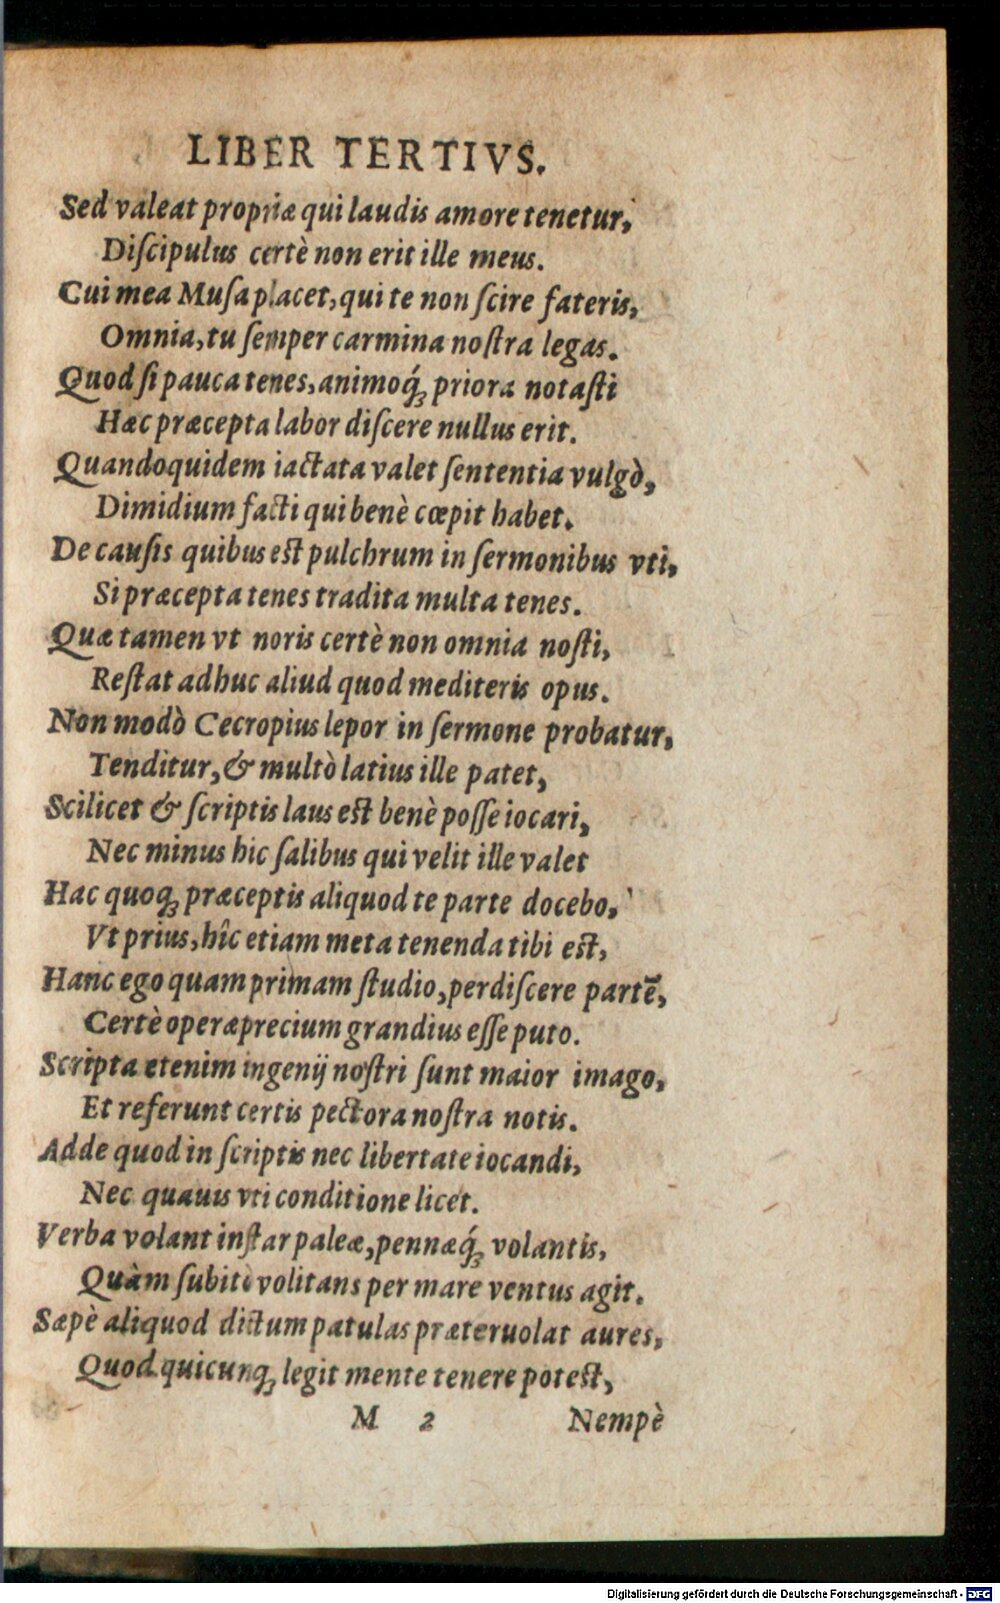 LIBER TERTIVS.
Sed valeat propriæ qui laudis amore tenetur,
Diſcipulus certè non erit ille meus.
Cui mea Muſa placet, qui te non ſcire fateris,
Omnia, tu ſemper carmina noſtra legas.
Quod ſi pauca tenes, animoq́ꝫ priora notaſti
Hæc præcepta labor diſcere nullus erit.
Quandoquidem iactata valet ſententia vulgò,
Dimidium facti qui benè cœpit habet.
De cauſis quibus est pulchrum in ſermonibus vti,
Si præcepta tenes tradita multa tenes.
Quæ tamen vt noris certè non omnia noſti,
Reſtat adhuc aliud quod mediteris opus.
Non modò Cecropius lepor in ſermone probatur,
Tenditur, & multò latius ille patet,
Scilicet & ſcriptis laus est benè poſſe iocari,
Nec minus hic ſalibus qui velit ille valet
Hac quoqꝫ præceptis aliquod te parte docebo,
Vt prius, hîc etiam meta tenenda tibi est,
Hanc ego quam primam ſtudio, perdiſcere partē,
Certè operæprecium grandius eſſe puto.
Scripta etenim ingenij noſtri ſunt maior imago,
Et referunt certis pectora noſtra notis.
Adde quod in ſcriptis nec libertate iocandi,
Nec quauis vti conditione licet.
Verba volant inſtar paleæ, pennæq́ꝫ volantis,
Quàm ſubitò volitans per mare ventus agit.
Sæpè aliquod dictum patulas præteruolat aures,
Quod quicunqꝫ legit mente tenere potest,
M 2 Nempè
Digitalisierung gefördert durch die Deutsche Forschungsgemeinschaft - DFG